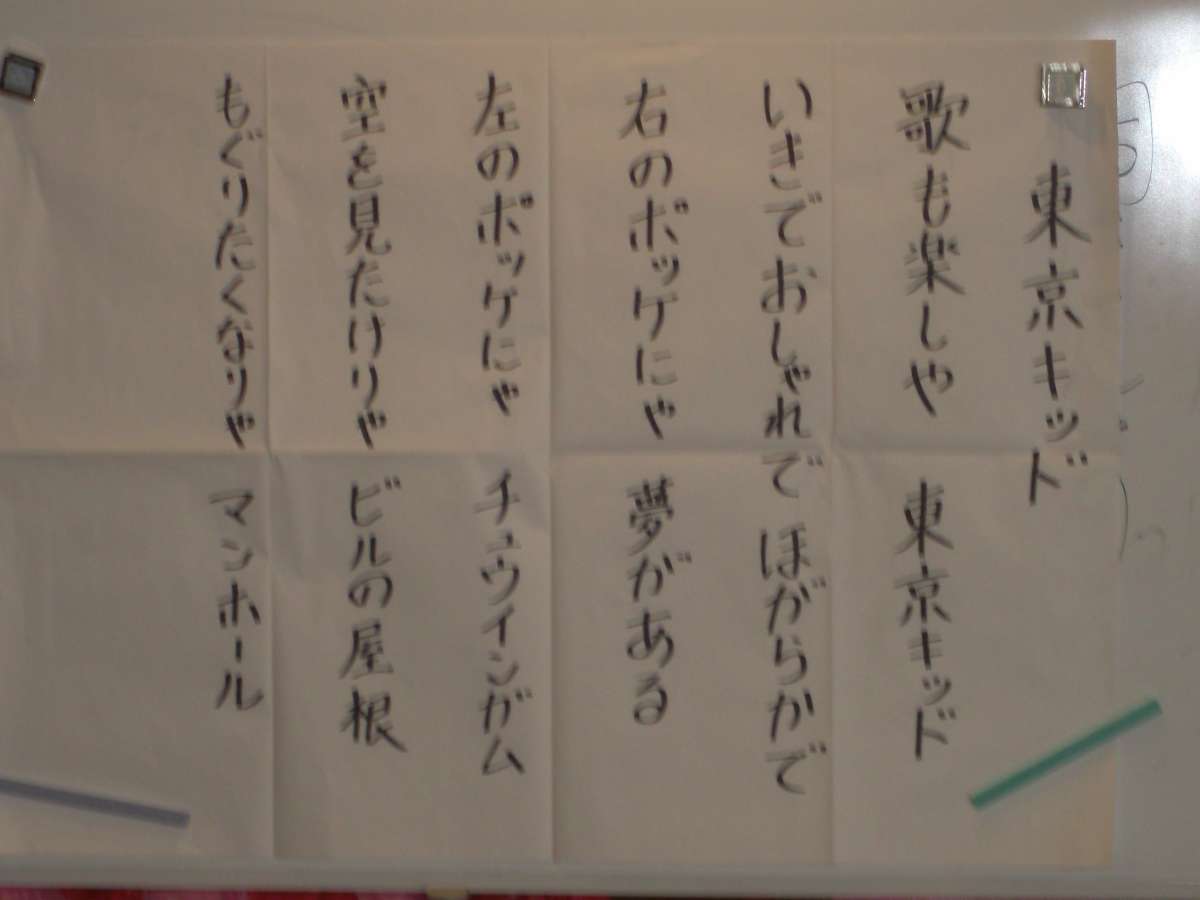 東京キッド
歌も楽しや 東京キッド
いきでおしゃれで ほがらかで
右のポッケにゃ 夢がある
左のポッケにゃ チュウインガム
空を見たけりゃ ビルの屋根
もぐりたくなりゃ マンホール